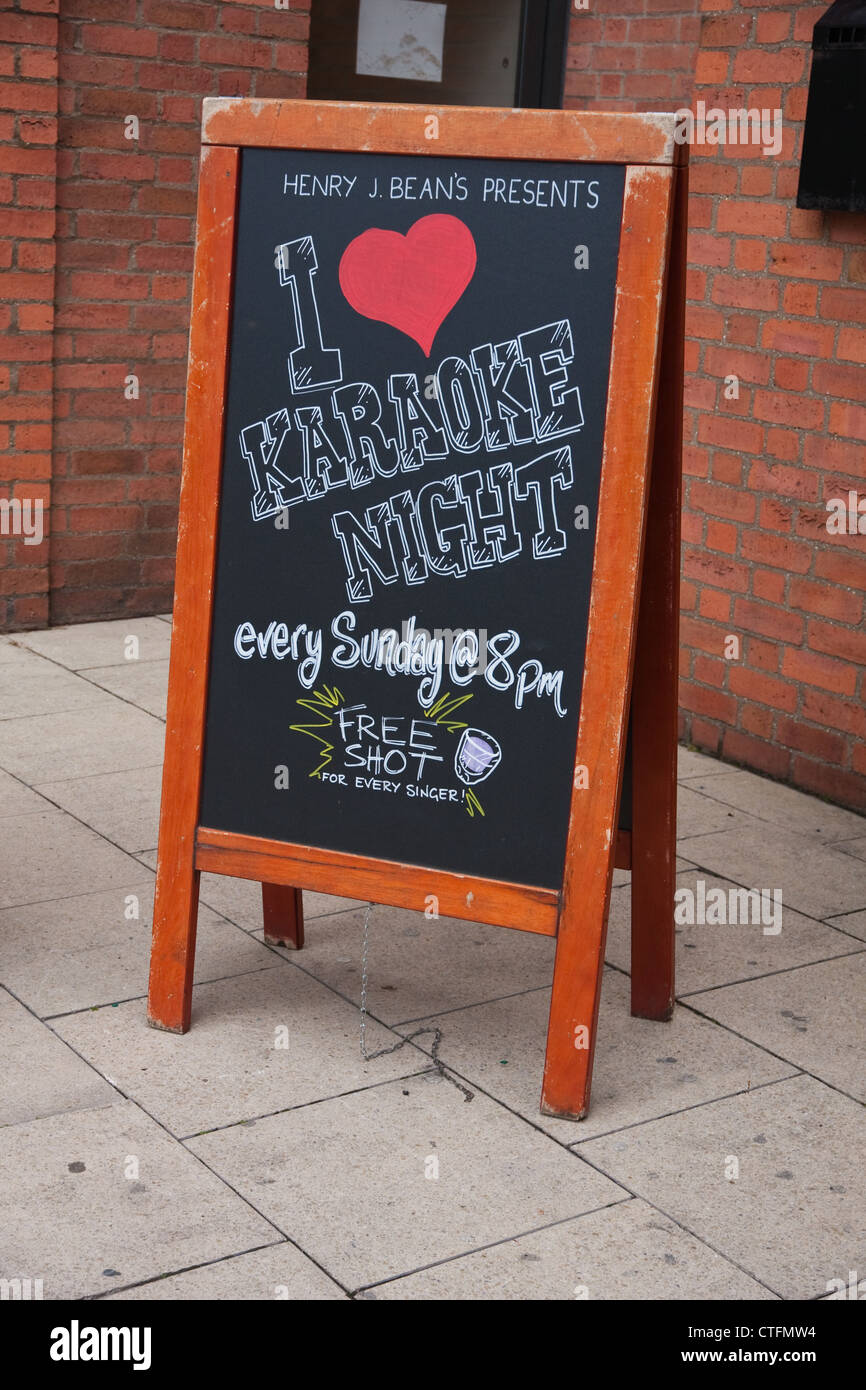 HENRY J. BEAN'S PRESENTS
I
KARAOKE
NIGHT
every Sunday @ 8pm
FREE
SHOT
FOR EVERY SINGER!
alamy
Image ID: CTFMW4
www.alamy.com